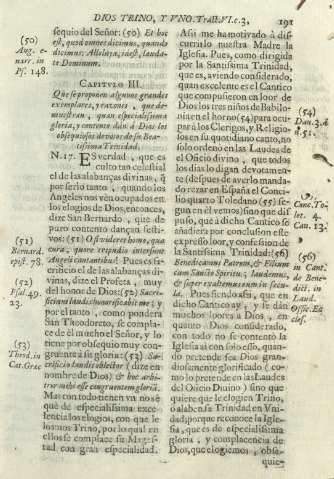 DIOS TRINO, Y VNO. Trat. VI. c. 3. 191
(50)
Aug. e-
narr. in
Ps. 148.
sequio del Señor: (50) Et hoc
est, quod omnes dicimus, quando
dicimus: Alleluya, idest, lauda-
te Dominum.
CAPITULO III.
Que se proponen algunos grandes
exemplares, y razones, que de-
muestran, quan especialissima
gloria, y contento dàn à Dios los
obsequiosos devotos de su Bea-
tissima Trinidad.
N. 17. ES verdad, que es
culto tan celestial
el de las alabanças divinas, q̃
por serlo tanto, quando los
Angeles nos vèn ocupados en
los elogios de Dios, entonces,
dize San Bernardo, que de
puro contento dançan festi-
vos: (51) O si videres homo, qua
cura, quove tripudio intersunt
Angeli cantantibus! Pues es sa-
crificio el de las alabanças di-
vinas, dize el Profeta, muy
del honor de Dios: (52) Sacri-
ficium laudis honorificabit me; y
por el tanto, como pondera
San Theodoreto, se compla-
ce de èl mucho el Señor, y lo
tiene por obsequio muy con-
gruente à su gloria: (53) Sa-
crificio laudis oblector (dize en
nombre de Dios) & hoc arbi-
tror meæ esse congruentem gloriæ.
Mas con todo tienen vn no sè
què de especialissima exce-
lencia los elogios, con que le
loamos Trino, por lo qual en
ellos se complace su Mages-
tad con gran especialidad.
(51)
Bernard.
epist. 78.
(52)
Psal. 49.
23.
(53)
Theod. in
Cat. Græc
Assi me ha motivado à dis-
currirlo nuestra Madre la
Iglesia. Pues, como dirigida
por la Santissima Trinidad,
que es, aviendo considerado,
quan excelente es el Cantico
que compusieron en loor de
Dios los tres niños de Babilo-
nia en el horno (54) para ocu-
par à los Clerigos, y Religio-
sos en su quotidiano canto, no
solo ordenò en las Laudes de
el Oficio divino, que todos
los dias lo digan devotamen-
te (despues de averlo manda-
do rezar en España el Conci-
lio quarto Toledano (55) se-
gun en èl vemos) sino que dis-
puso, que à dicho Cantico se
añadiera por conclusion este
expresso loor, y confession de
la Santissima Trinidad: (56)
Benedicamus Patrem, & Filium
cum Sancto Spiritu; laudemus,
& super exaltemus eum in sæcu-
la. Pareciendo assi, que en
dicho Cantico ay, y se dàn
muchos loores à Dios, en
quanto Dios considerado,
con todo no se contentò la
Iglesia assi con solo esso, quan-
do pretende sea Dios gran-
diosamente glorificado (co-
mo lo pretende en las Laudes
del Oficio Divino) sino que
quiere que le elogien Trino,
ò alaben su Trinidad en Vni-
dad; porque reconoce la Igle-
sia, que es de especialissima
gloria, y complacencia de
Dios, que elogiemos, obse-
quie-
(54)
Dan. 3. à
v. 51.
Cone. To-
let. 4.
Can. 13.
(56)
in Cant.
de Bene-
dict. in
Laud.
Offic. Ec
cles.